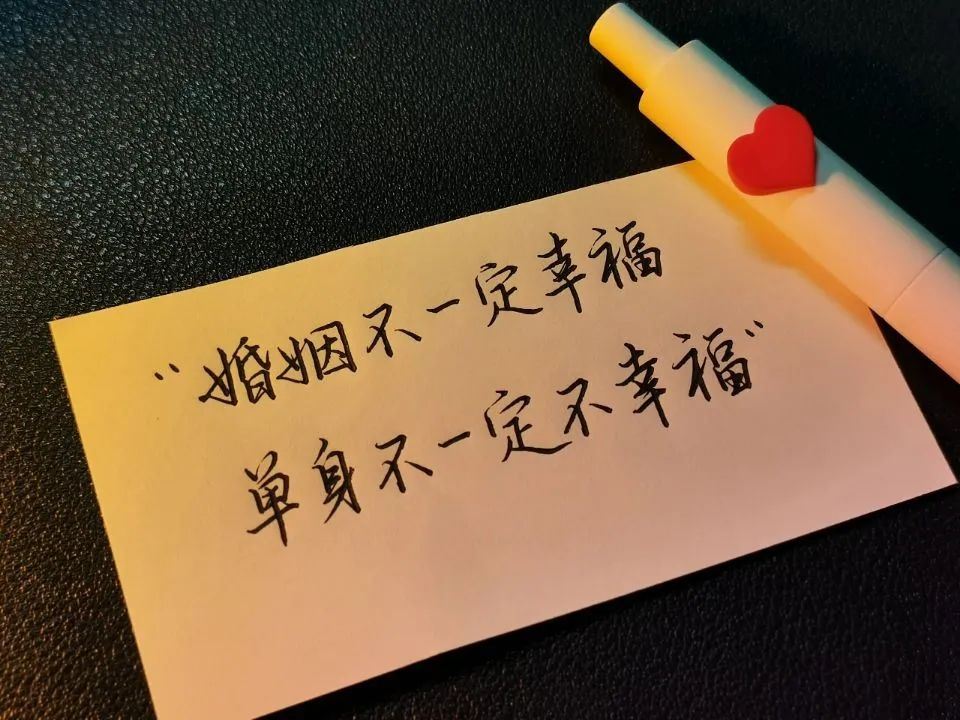 “婚姻不一定幸福
单身不一定不幸福”